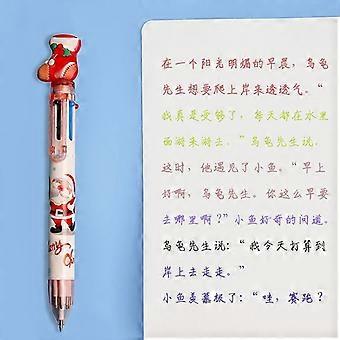 在一个阳光明媚的早晨，乌龟
先生想要爬上岸来透透气。“
我真是受够了，每天都在水里
西游来游去。”乌龟先生说.
这时，他遇见了小鱼。“早上
好啊，乌龟先生。你这么早要
去哪里啊？”小鱼好奇的问道.
乌龟先生说：“我今天打算到
岸上去走走。”
小鱼羡慕极了：“哇，赛跑？